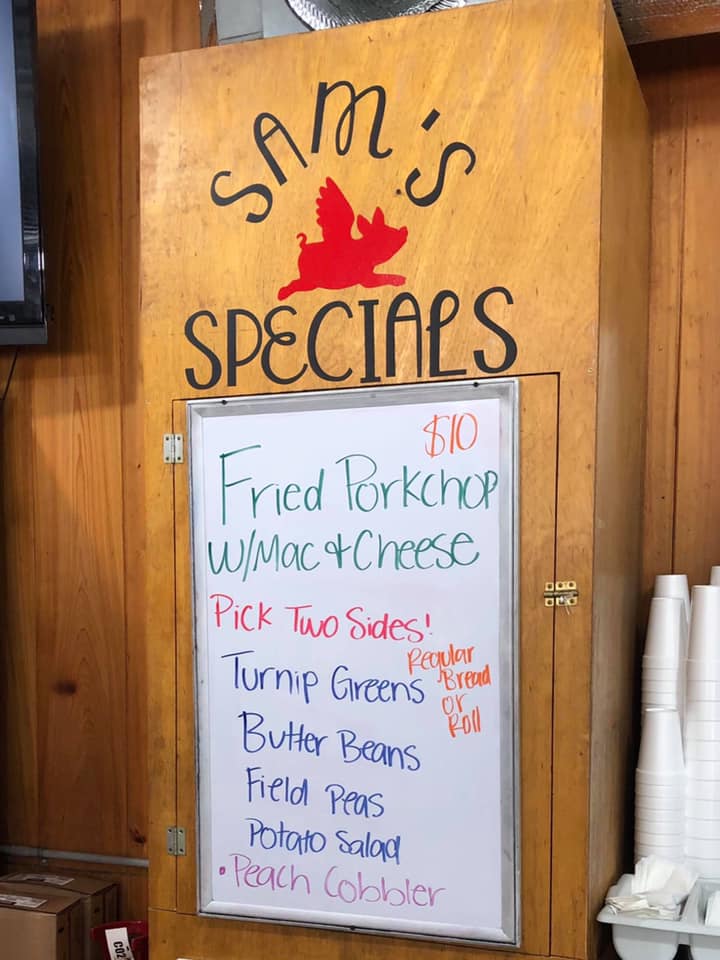 SAM'S
SPECIALS
$10
Fried Porkchop
W/Mac & Cheese
Pick Two Sides!
Turnip Greens
Regular
Bread
or
Roll
Butter Beans
Field Peas
Potato Salad
• Peach Cobbler